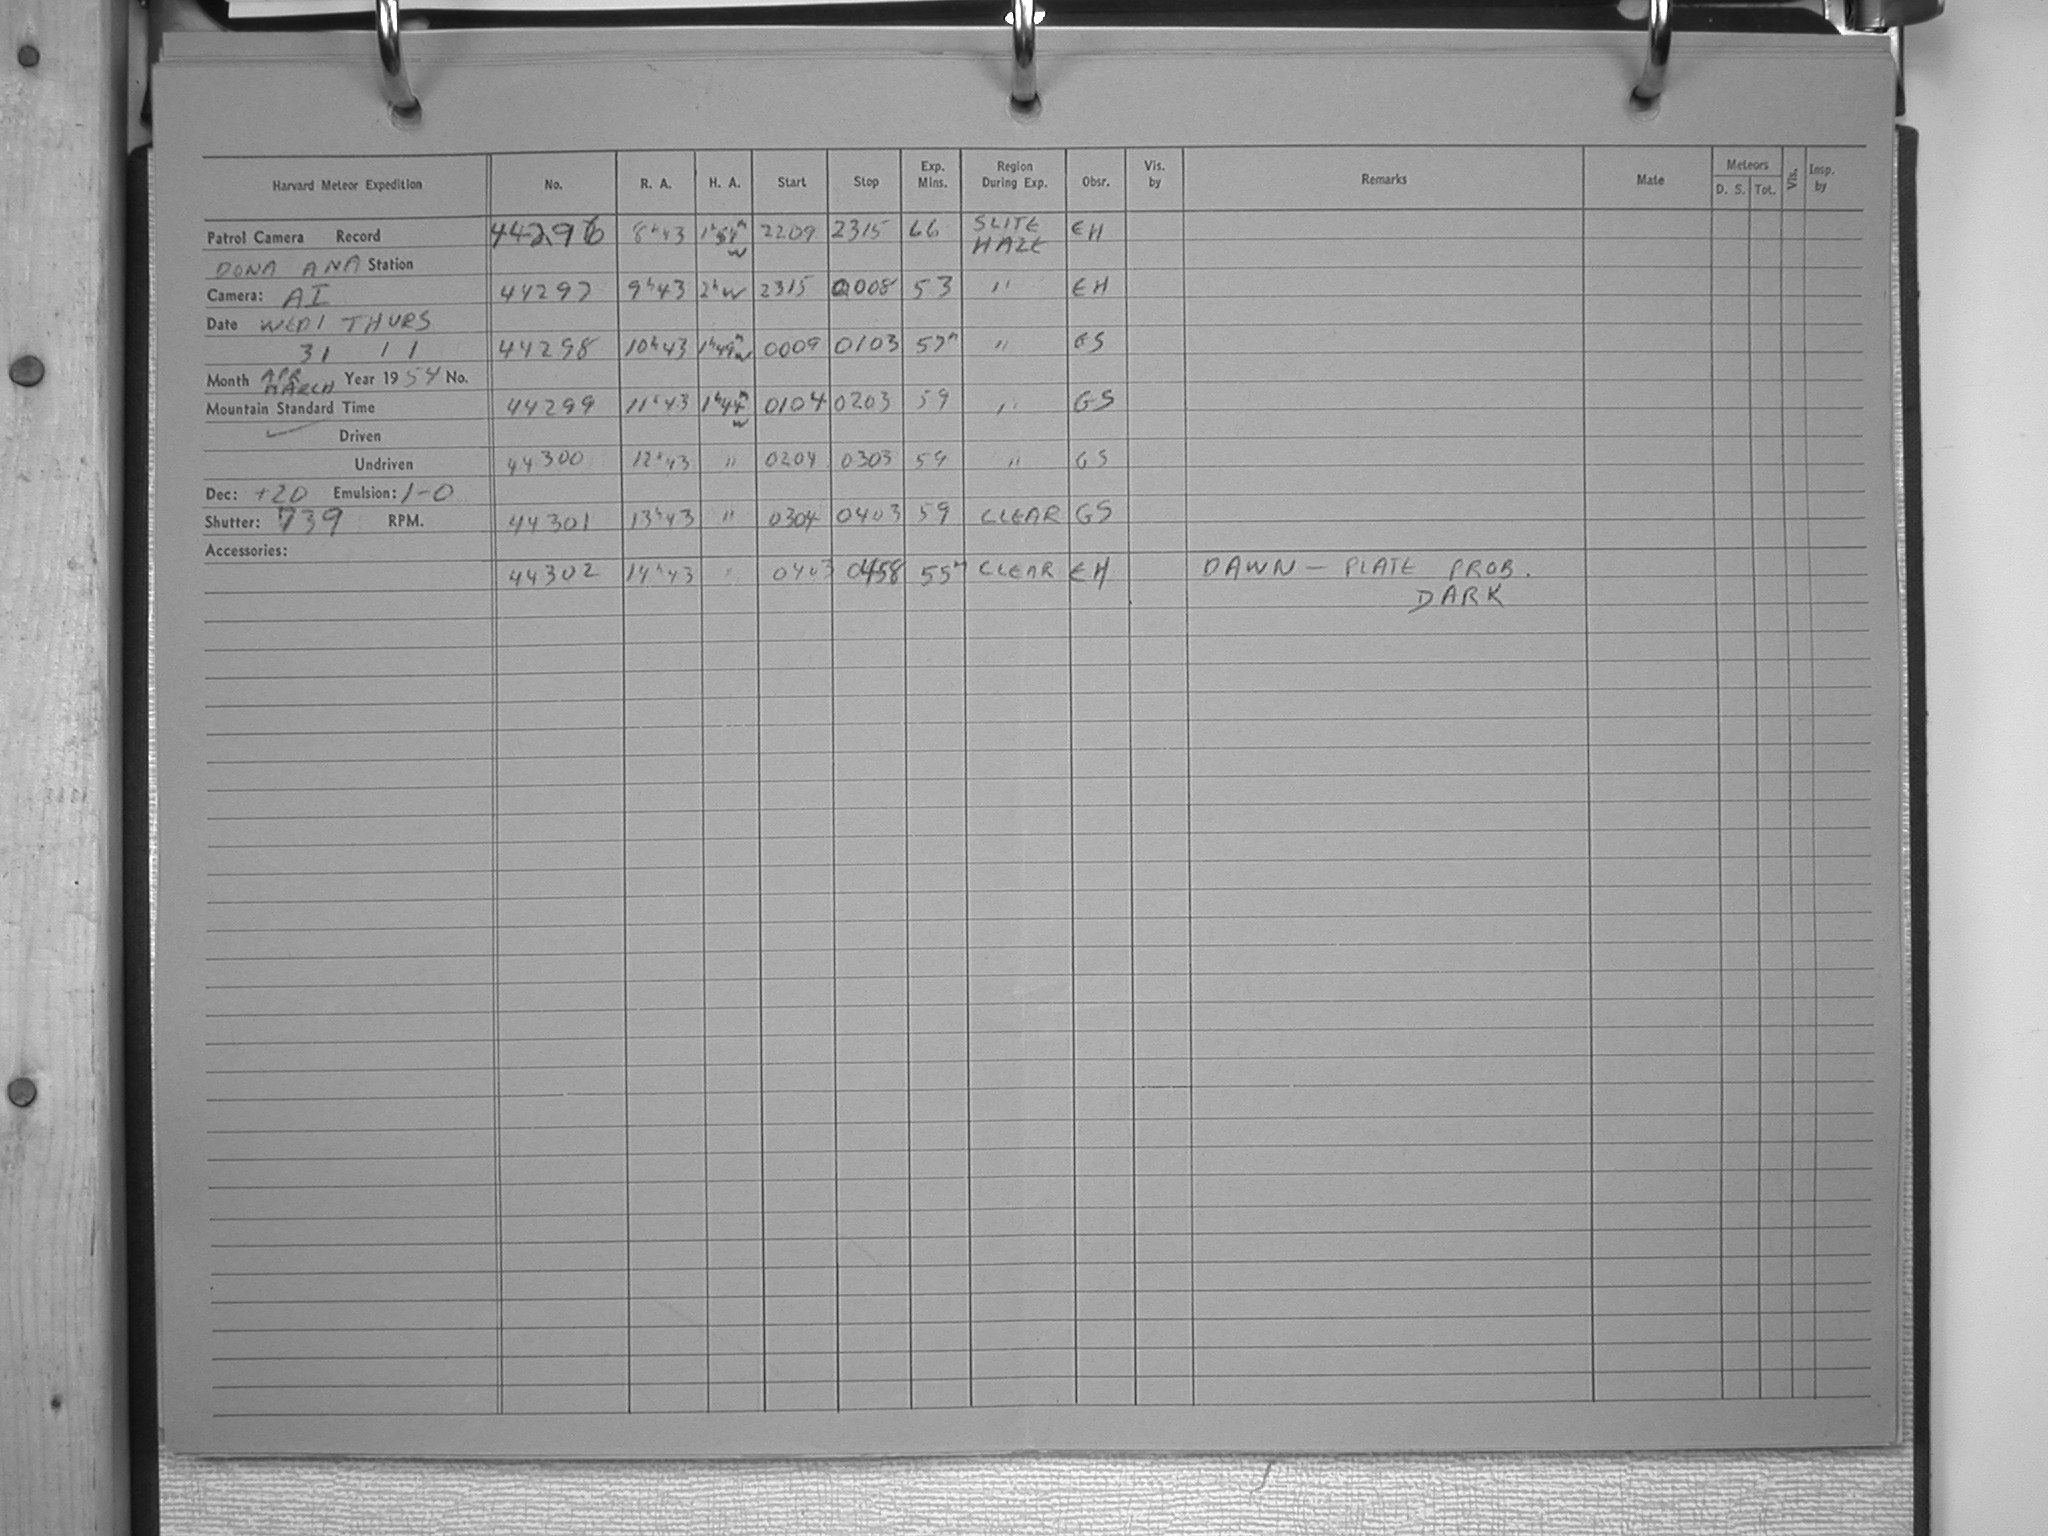 Harvard Meteor Expedition No. R. A. H. A. Start Stop Exp. Mins. Region During Exp. Obsr. Vis. by Remarks Mate Meteors D. S. Tot. Vis. Insp. by
Patrol Camera Record 44296 8h43 1h54m W 2209 2315 66 SLITE HAZE EH
DONA ANA Station
Camera: AI 44297 9h43 2h W 2315 0008 53 " EH
Date WED / THURS
31 / 1 44298 10h43 1h49m W 0009 0103 " GS
Month APR MARCH Year 1954 No.
Mountain Standard Time 44299 11h43 1h44m W 0104 0203 59 " GS
✓ Driven
Undriven 44300 12h43 " 0204 0303 59 " GS
Dec: +20 Emulsion: 1-0
Shutter: 739 RPM. 44301 13h43 " 0304 0403 59 CLEAR GS
Accessories:
44302 14h43 " 0403 0458 55m CLEAR EH DAWN — PLATE PROB.
DARK